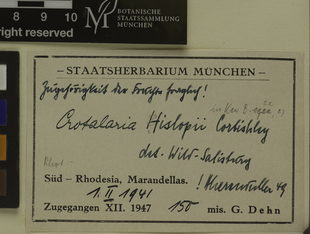 8 9 10
right reserved
BOTANISCHE
STAATSSAMMLUNG
MÜNCHEN
– STAATSHERBARIUM MÜNCHEN –
Zugehörigkeit der Früchte fraglich!
Crotalaria Hislopii Corbishley
det. Wild-Salisbury
Süd – Rhodesia, Marandellas.
! Merxmüller 49
1. II 1941
Zugegangen XII. 1947 150 mis. G. Dehn